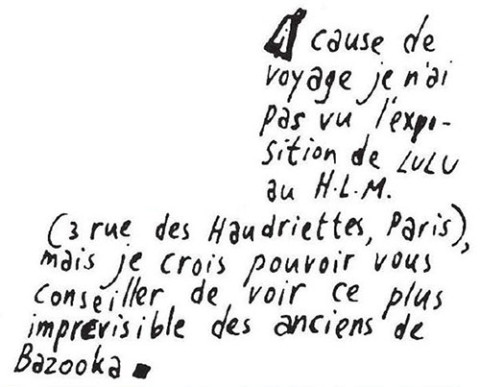 A cause de
voyage je n'ai
pas vu l'expo-
sition de LULU
au H.L.M.
(3 rue des Haudriettes, Paris),
mais je crois pouvoir vous
conseiller de voir ce plus
imprevisible des anciens de
Bazooka